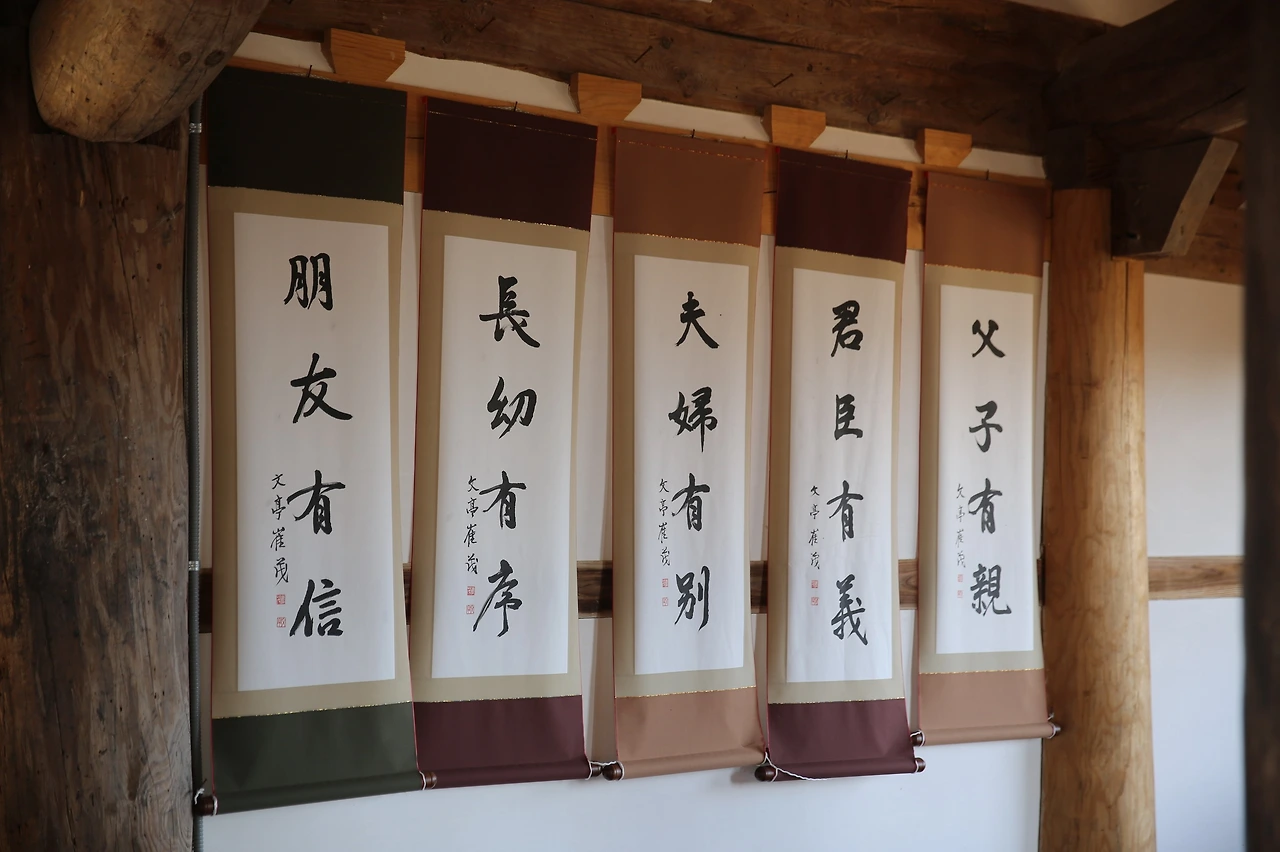 父子有親
文亭崔茂
君臣有義
文亭崔茂
夫婦有别
文亭崔茂
長幼有序
文亭崔茂
朋友有信
文亭崔茂